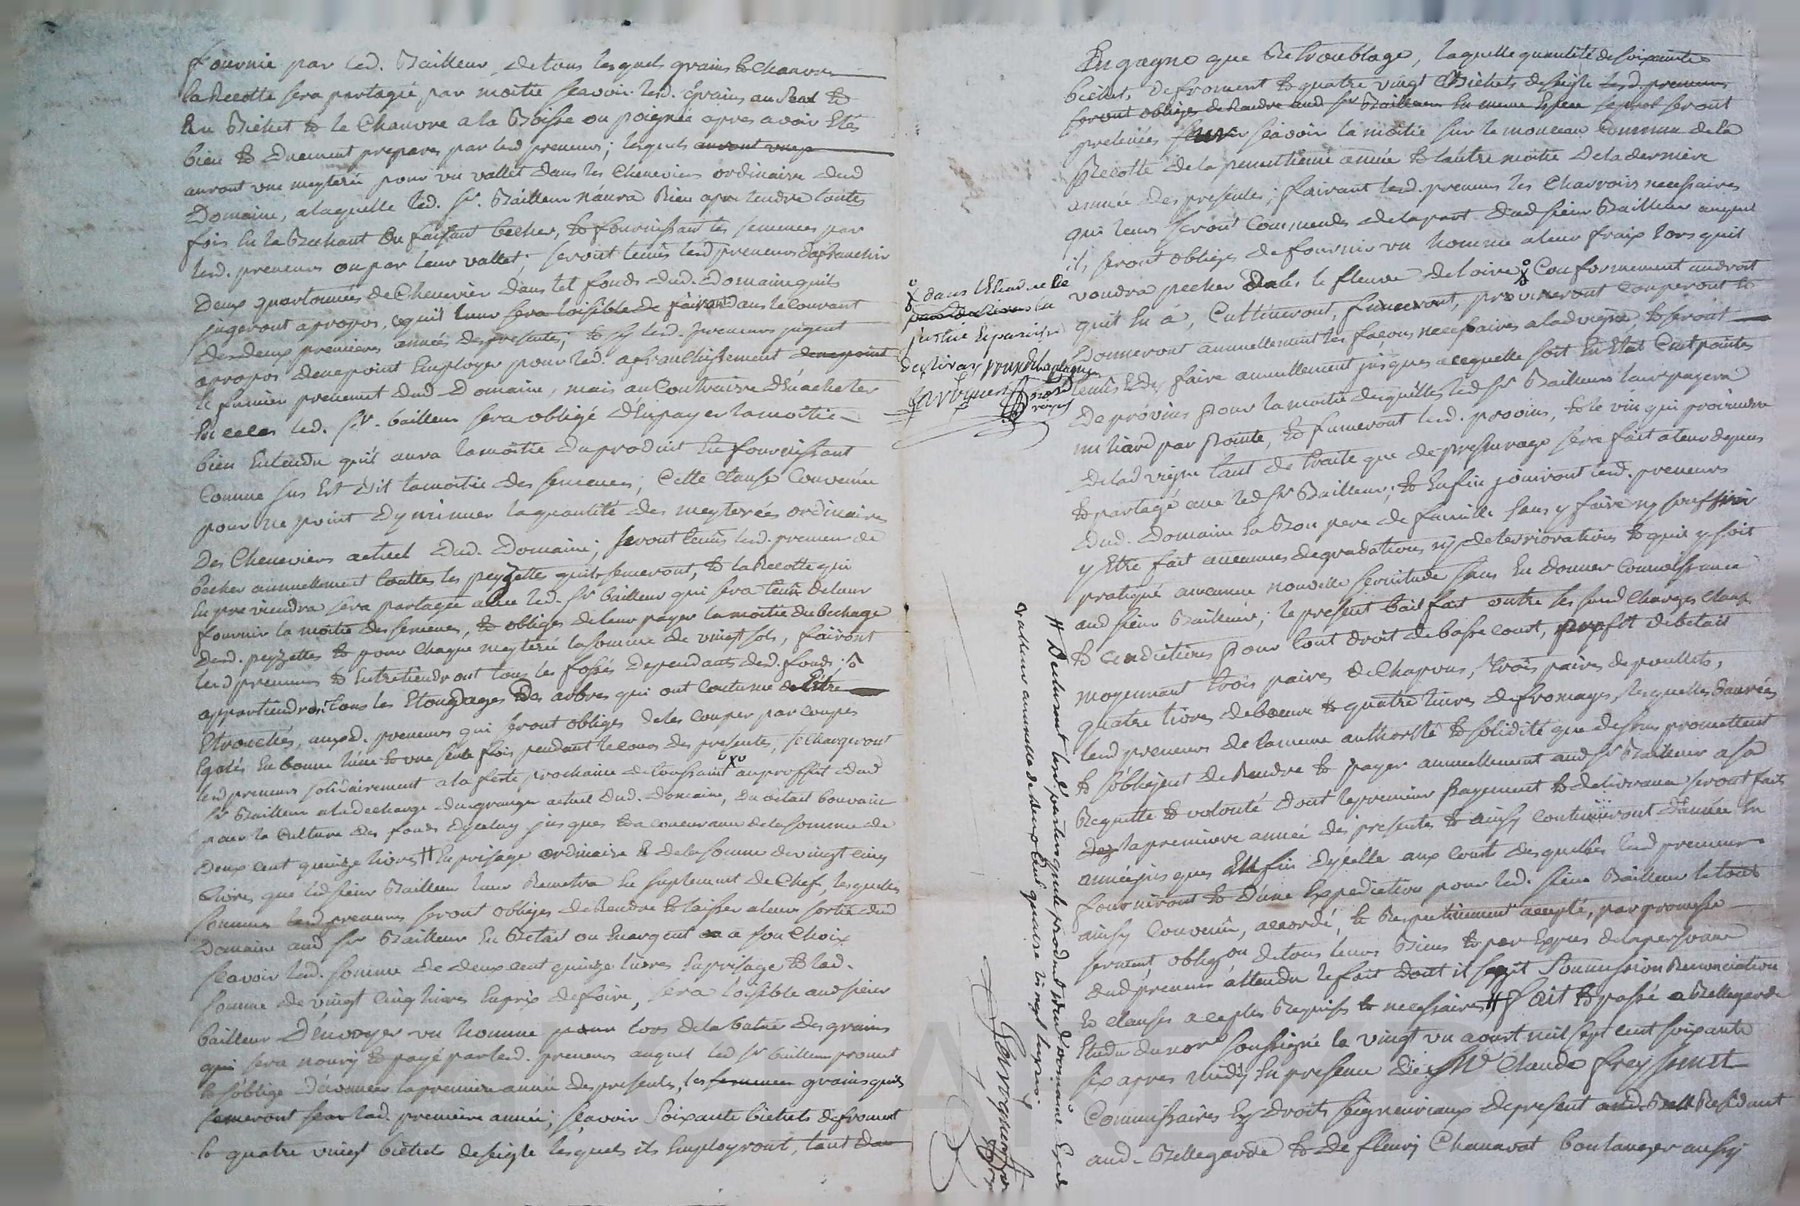 fournie par led. Bailleur, de tous lesquels grains & chanvre
la Recolte sera partagée par moitié sçavoir lesd. grains au Seat &
au Bichet & le Chanvre a la Boisse ou poignée apres avoir Etés
bien & duement préparés par lesd preneurs; lesquels
auront une meyterée pour un vallet dans les Cheneviers ordinaire dud
Domaine, a laquelle led. Sr. Bailleur n'aura Rien a prétendre toutes
fois en la Bechant ou faisant becher, & fournissant les semences par
lesd. preneurs ou par leur vallet; seront tenus lesd preneurs d'affranchir
Deux quartonnées de Chenevier dans tel fonds dud. Domaine qu'ils
jugeront apropos, ce qu'il leur sera loisible de faire dans le courant
des deux premieres années des presente; & sy lesd. preneurs jugent
apropos de ne point Employer pour led. affranchissement
le fumier provenant dud Domaine, mais au Contraire d'En acheter
En ce cas led. Sr. bailleur sera obligé d'En payer la moitié
bien Entendu qu'il aura la moitié du produit En fournissant
Comme sus Est dit la moitié des semences; Cette Clause Convenue
pour ne point dyminuer la quantité des meyterées ordinaires
Des Cheneviers actuel dud. Domaine; seront tenus lesd. preneurs de
becher annuellement toutes les peyzette qu'ils semeront, & la Recolte qui
En proviendra sera partagée avec led. Sr bailleur qui sera tenu de leur
fournir la moitié des semences, & obligés de leur payer la moitié du bechage
desd. peyzettes & pour chaque meyterée la somme de vingt sols, fairont
lesd preneurs & Entretiendront tous les fossés dependants desd. fonds;
appartiendront tous les Elongages des arbres qui ont coutume de Etre
Etronchés, auxd. preneurs qui seront obligés de les couper par coupes
Egales En bonne lune & une seule fois pendant le cours des presentes, se chargeront
lesd preneurs solidairement a la feste prochaine de toussaint au proffit dud
Sr Bailleur a la decharge du granger actuel dud. Domaine, du betail bouvain
pour la Culture des fonds d'yceluy jusques & a concurrance de la somme de
Deux cent quinze livres # En prisage ordinaire & de la somme de vingt cinq
Livres que led sieur Bailleur leur Remettra En suplement de Chef, lesquelles
sommes lesd preneurs seront obligés de Rendre & laisser a leur sortie dud
Domaine aud Sr Bailleur En Betail ou En argent a son Choix
Sçavoir lad. somme de deux cent quinze livres En prisage & lad.
somme de vingt cinq livres En prix de foire, sera loisible aud sieur
bailleur d'Envoyer un homme pour lors de la batue des grains
qui sera nourry & payé par lesd. preneurs auquel led Sr bailleur promet
& s'oblige d'avancer la premiere année des presentes, les grains qu'ils
semeront lad. premiere année; sçavoir soixante bichets de froment
& quatre vingt bichets de seigle lesquels ils Employront, tant
dans l'Etendue de
la
justice En paroisse
de
En gagne que Retroublage, laquelle quantité de soixante
bichet, de froment & quatre vingt Bichets de seigle
seront
prelevées sçavoir la moitié sur le monceau Commun de la
Recolte de la penultieme année & l'autre moitié de la derniere
année des presentes; fairont lesd. preneurs les Charrois necessaires
qui leurs seront Commendés de la part dud sieur Bailleur auquel
ils seront obligés de fournir un homme a leur fraix lors qu'il
voudra pecher dans le fleuve de loire Conformement au droit
qu'il En a, Cultiveront, fumeront, provineront Couperont &
Donneront annuellement les façons necessaires a lad vigne, & seront
tenus d'y faire annuellement jusques a Cent pointes
De provins pour la moitié desquelles led Sr Bailleur leur payera
un liard par pointe, & fumeront led. provins, & le vin qui proviendra
de lad vigne tant de traite que de pressurage sera fait a leur depens
& partagé avec led Sr Bailleur; & Enfin jouiront lesd. preneurs
Dud. Domaine En Bon pere de famille sans y faire ny souffrir
y Etre fait aucunes degradations ny deteriorations & qu'il y soit
pratiqué aucune nouvelle servitude sans En donner Connoissance
aud sieur Bailleur, le present bail fait outre les susd Charges Clause
& Conditions pour tout droit de basse court, proffit de betail
moyennant trois paires de Chapons, trois paires de poullets,
quatre livres de beurre & quatre livres de fromages, lesquelles danrées
lesd preneurs de la meme authorité & solidité que dessus promettent
& s'obligent de Rendre & payer annuellement aud Sr Bailleur a sa
Requette & volonté dont le premier payement & delivrance seront faits
la premiere année des presentes & ainsy continüeront d'année En
année jusques En fin d'ycelle aux cout desquelles lesd preneurs
fourniront & d'une Expedition pour led. sieur Bailleur le tout
ainsy Convenû, accordé, & Respectivement accepté, par promesse
serment oblig.on de tous leurs Biens & par Expres de la personne
dud preneur attendu le fait dont il s'agit Soumission Renonciation
& clauses a ce plus Requises & necessaires # fait & passé a Bellegarde
Etude du no.re soussigné le vingt un aoust mil sept cent soixante
six apres midy En presence de Me Claude Freyssinet
Commissaires Es Droits seigneuriaux de present Residant
aud. Bellegarde & de fleury Chanavat boulanger aussy